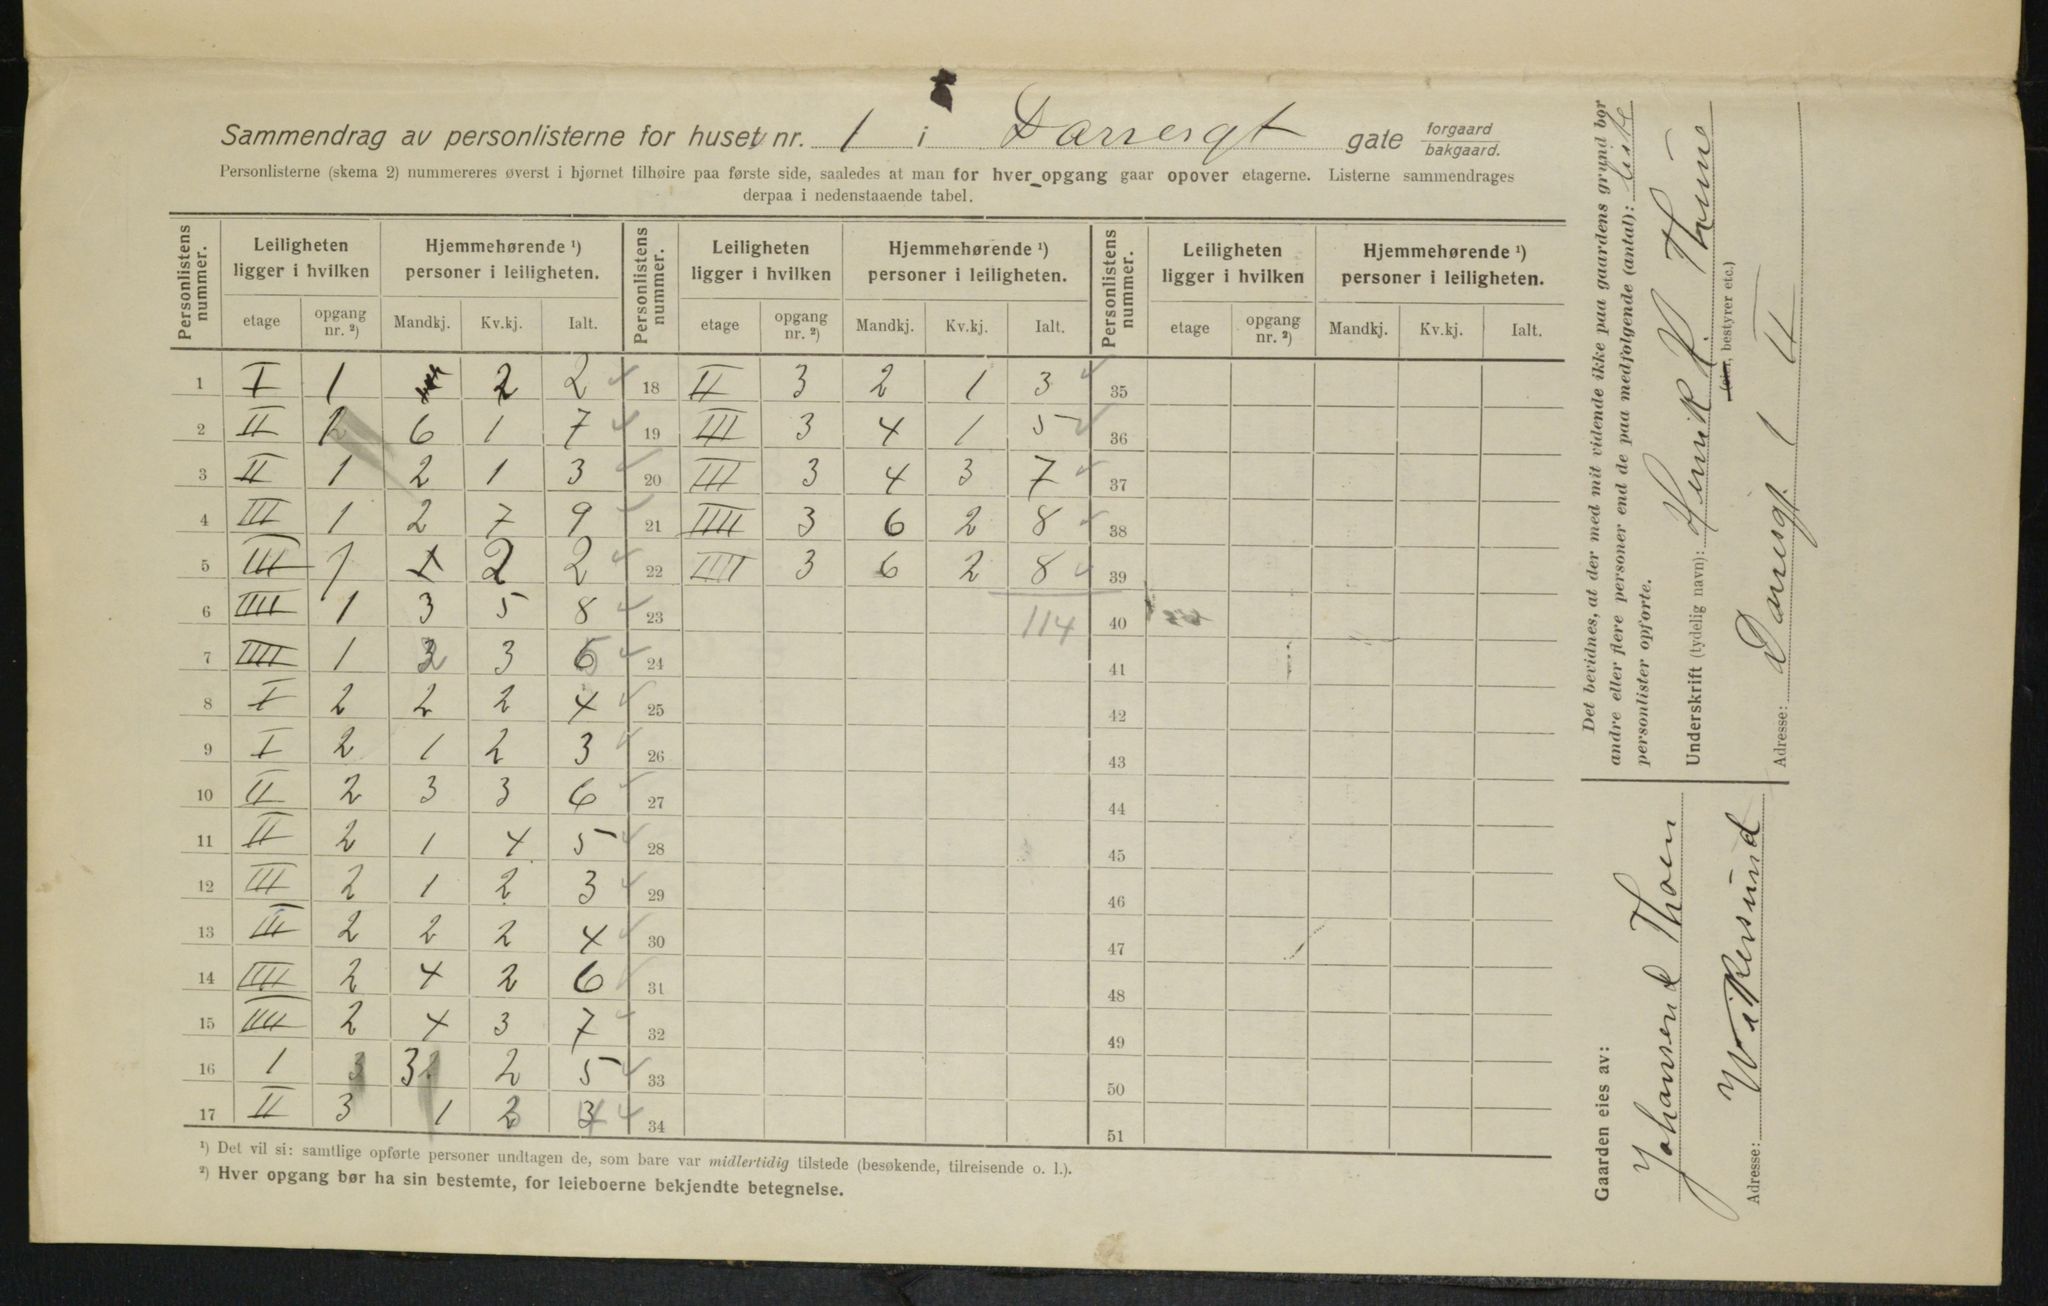 Sammendrag av personlisterne for huset nr. 1 i Darresgt gate forgaard/bakgaard.
Personlisterne (skema 2) nummereres øverst i hjørnet tilhøire paa første side, saaledes at man for hver opgang gaar opover etagerne. Listerne sammendrages
derpaa i nedenstaaende tabel.
Personlistens nummer. Leiligheten ligger i hvilken Hjemmehørende ¹) personer i leiligheten. Personlistens nummer. Leiligheten ligger i hvilken Hjemmehørende ¹) personer i leiligheten. Personlistens nummer. Leiligheten ligger i hvilken Hjemmehørende ¹) personer i leiligheten.
etage opgang nr. ²) Mandkj. Kv.kj. Ialt. etage opgang nr. ²) Mandkj. Kv.kj. Ialt. etage opgang nr. ²) Mandkj. Kv.kj. Ialt.
1 I 1 2 2 18 II 3 2 1 3 35
2 II 1 6 1 7 19 III 3 4 1 5 36
3 II 1 2 1 3 20 III 3 4 3 7 37
4 III 1 2 7 9 21 IIII 3 6 2 8 38
5 III 1 2 2 22 IIII 3 6 2 8 39
6 IIII 1 3 5 8 23 114 40
7 IIII 1 3 24 41
8 I 2 2 2 4 25 42
9 I 2 1 2 3 26 43
10 II 2 3 3 6 27 44
11 II 2 1 4 5 28 45
12 III 2 1 2 3 29 46
13 III 2 2 2 4 30 47
14 IIII 2 4 2 6 31 48
15 IIII 2 4 3 7 32 49
16 1 3 3 2 5 33 50
17 II 3 1 34 51
¹) Det vil si: samtlige opførte personer undtagen de, som bare var midlertidig tilstede (besøkende, tilreisende o. l.).
²) Hver opgang bør ha sin bestemte, for leieboerne bekjendte betegnelse.
Det bevidnes, at der med mit vidende ikke paa gaardens grund bor
andre eller flere personer end de paa medfølgende (antal): liste
personlister opførte.
Underskrift (tydelig navn): Henrik R. Thoune
(eier, bestyrer etc.)
Adresse: Darresgt. 1 II
Gaarden eies av:
Johansen & Thoen
Adresse: Vikersund